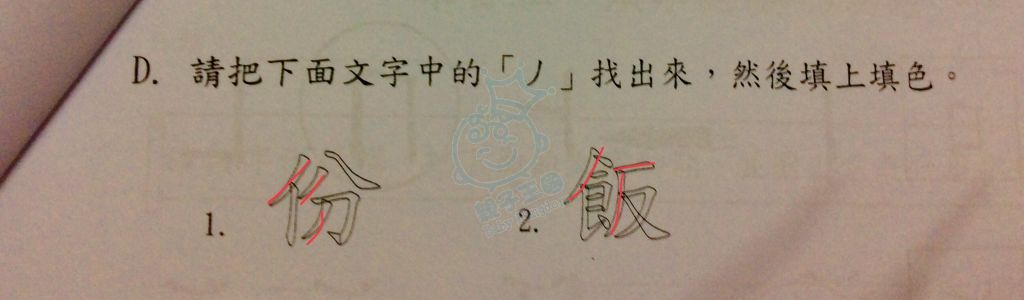 D. 請把下面文字中的「ノ」找出來，然後填上填色。
1. 份 2. 飯
親子王國